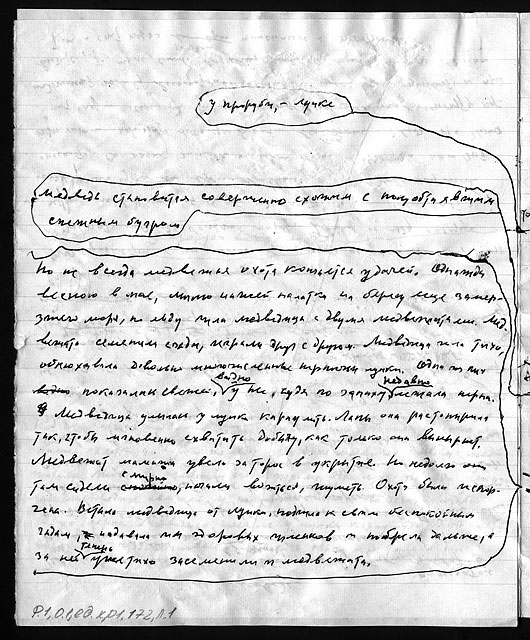 у проруби, – лунке
Медведь становится совершенно схожим с полуобтаявшим
снежным бугром
Но не всегда медвежья охота кончается удачей. Однажды
весною в мае, мимо нашей палатки на берегу еще замер-
зшего моря, по льду шла медведица с двумя медвежатами. Мед-
вежата семенили следом, играли друг с другом. Медведица шла тихо,
обнюхивала довольно многочисленные нерпичьи лунки. Одна из них
показалась свежей, видно у нее, судя по запаху недавно лежала нерпа.
Медведица улеглась у лунки караулить. Лапы она растопырила
так, чтобы мгновенно схватить добычу, как только она вынырнет.
Медвежат мамаша увела за торос в укрытие. Но недолго они
там сидели смирно, начали возиться, шуметь. Охота была испор-
чена. Встала медведица от лунки, подошла к своим беспокойным
чадам, надавала им здоровых шлепков и побрела дальше, а
за ней теперь уже тихо засеменили и медвежата.
Р.1, о.1, ед.хр1.172, л.1